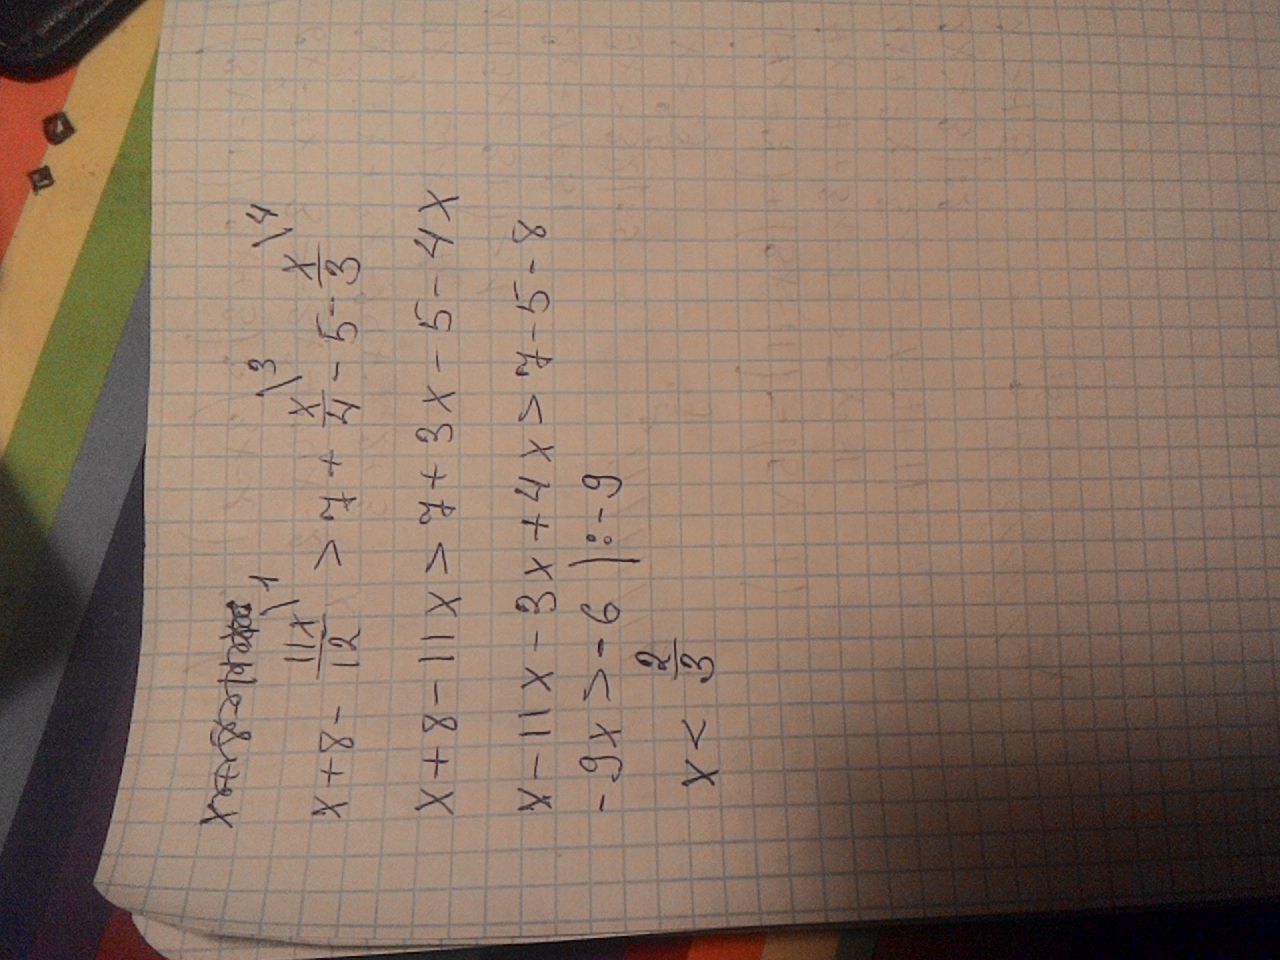 x + 8 - 11x/12 \1 > 7 + x/4 \3 - 5 - x/3 \4
x + 8 - 11x > 7 + 3x - 5 - 4x
x - 11x - 3x + 4x > 7 - 5 - 8
-9x > -6 | : -9
x < 2/3